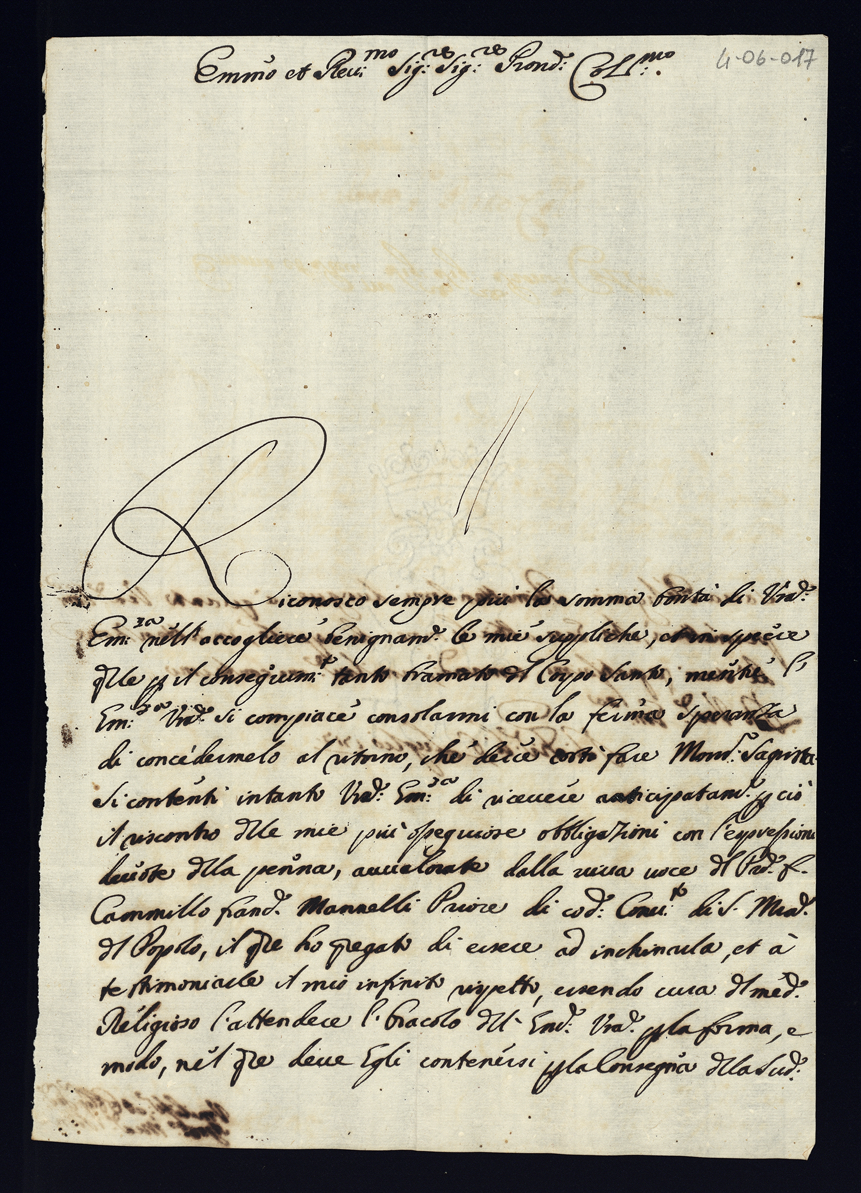 Emmo et Reu:mo Sig:re Sig:re Pron: Col:mo
4-06-017
Riconosco sempre più la somma bontà di Vra:
Em:za nell'accogliere benignam: le mie suppliche, et in specie
qlle p il conseguim:to tanto bramato dl Corpo Santo, mentre l'
Em:za Vra: si compiace consolarmi con la ferma speranza
di concedermelo al ritorno, che deve costì fare Mons: Sagrista.
Si contenti intanto Vra: Em:za di ricevere anticipatam: p ciò
il riscontro dlle mie più ossequiose obbligazioni con l'espressioni
divote dlla penna, avvalorate dalla viva voce dl Prd: f.
Cammillo Mannelli Priore di cod: Conv:to di S. Mra:
dl Popolo, il qle ho pregato di essere ad inchinarla, et à
testimoniarle il mio infinito rispetto, essendo cura dl med:
Religioso l'attendere l'Oracolo dll' Em: Vra: p la forma, e
modo, nel qle deve Egli contenersi p la Consegna dlla Sud: